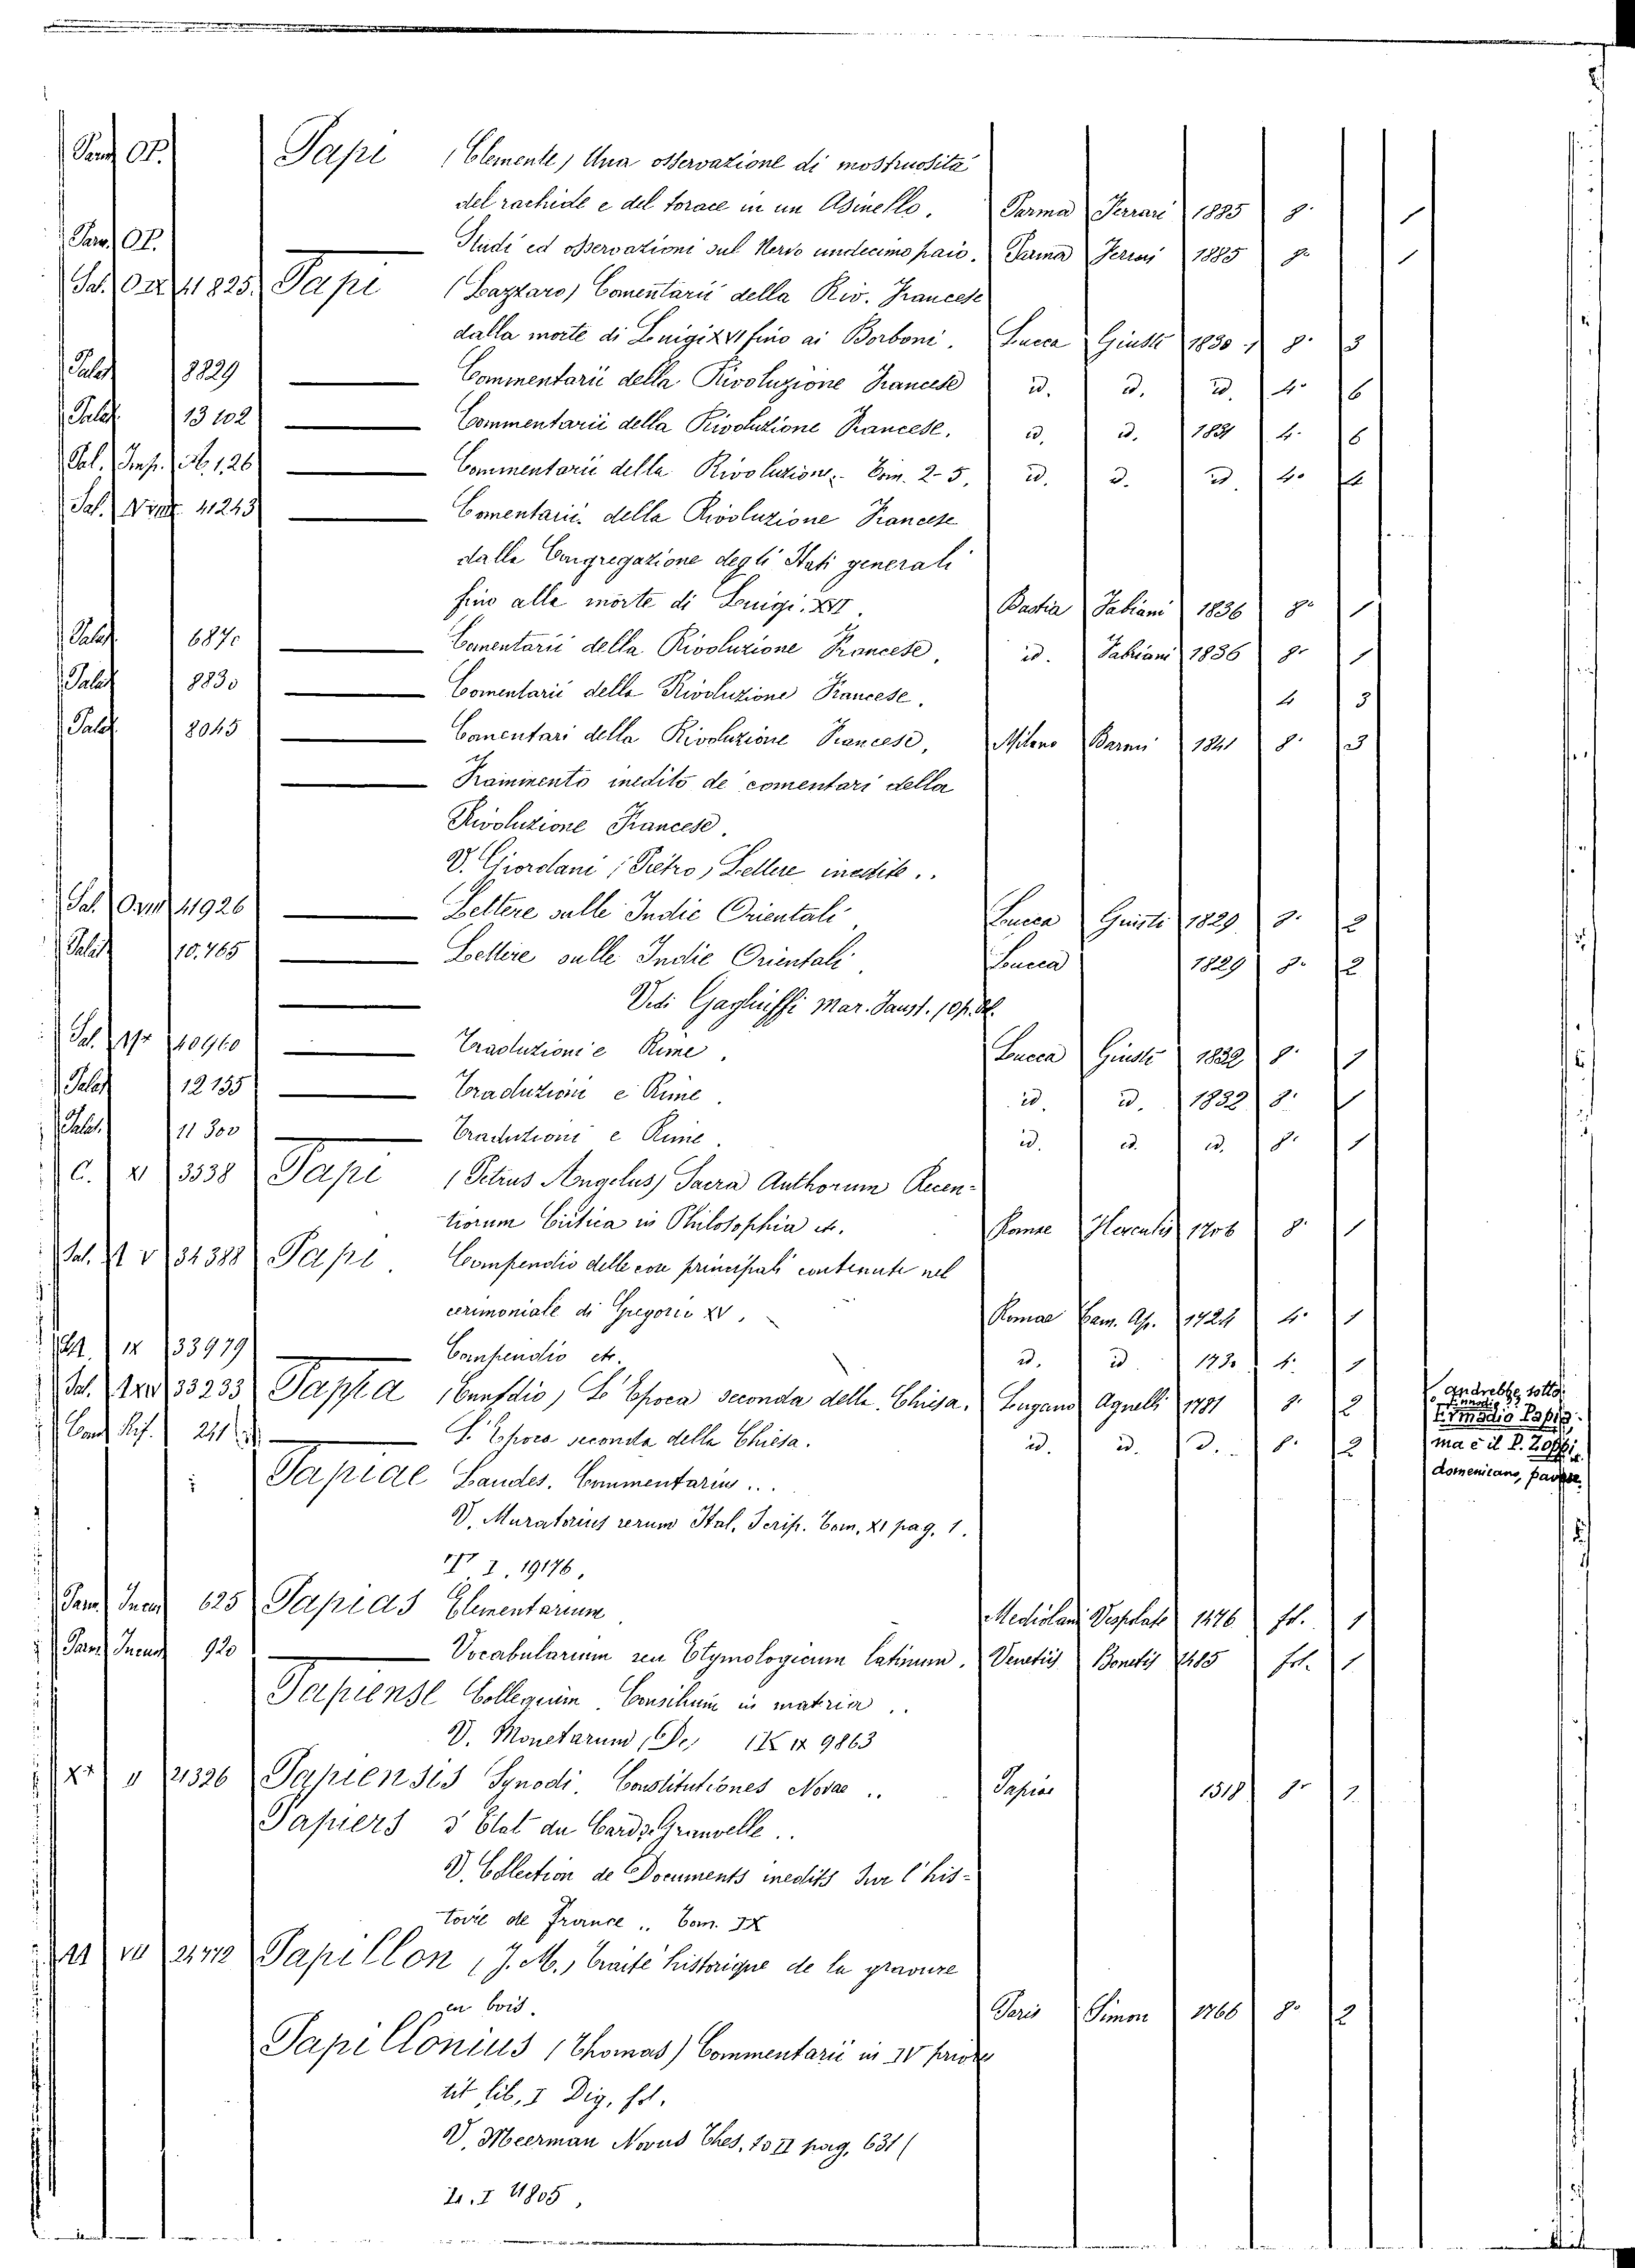 Parm. Op. Papi (Clemente) Una osservazione di mostruosità
del rachide e del torace in un Asinello. Parma Ferrari 1885 8° 1
Parm. Op. Studi ed osservazioni sul Nervo undecimo paio. Parma Ferrari 1885 8° 1
Sal. 41825 Papi (Lazzaro) Comentarii della Riv. Francese
dalla morte di Luigi XVI fino ai Borboni. Lucca Giusti 1830-1 8° 3
Palat. 8829 Commentarii della Rivoluzione Francese id. id. id. 4° 6
Palat. 13102 Commentarii della Rivoluzione Francese. id. id. 1831 4° 6
Sal. 126 Commentarii della Rivoluzione.. Tom. 2-5. id. id. id. 4° 4
Sal. 41243 Comentarii della Rivoluzione Francese
dalla Congregazione degli Stati generali
fino alla morte di Luigi XVI. Bastia Fabiani 1836 8° 1
Palat. 6870 Comentarii della Rivoluzione Francese, id. Fabiani 1836 8° 1
Palat. 8830 Comentarii della Rivoluzione Francese. 4 3
Palat. 8045 Comentari della Rivoluzione Francese, Milano 1841 8° 3
Frammento inedito de' comentari della
Rivoluzione Francese.
V. Giordani (Pietro) Lettere inedite..
Sal. 41926 Lettere sulle Indie Orientali Lucca Giusti 1829 8° 2
Palat. 10.765 Lettere sulle Indie Orientali Lucca 1829 8° 2
Vedi Gagliuffi Mar. Faust.
Sal. 40960 Traduzioni e Rime. Lucca Giusti 1832 8° 1
Palat. 12155 Traduzioni e Rime. id. id. 1832 8° 1
Palat. 11300 Traduzioni e Rime. id. id. id. 8° 1
C. 3538 Papi (Petrus Angelus) Sacra Authorum Recen-
tiorum Critica in Philosophia etc. Romae Herculis 1706 8° 1
Sal. V 34388 Papi. Compendio delle cose principali contenute nel
cerimoniale di Gregorio XV. Romae Cam. Ap. 1724 4° 1
IX 33979 Compendio etc. id. id. 1730 4° 1
Sal. 33233 Pappia L'Epoca seconda della Chiesa. Lugano Agnelli 1781 8° 2
L'Epoca seconda della Chiesa. id. id. id. 8° 2
andrebbe sotto
Ermadio Papia
ma è il P. Zoppi
domenicano, pavese
Papiae Laudes. Commentarius...
V. Muratorius rerum Ital. Scrip. Tom. XI pag. 1.
I. 19176.
Parm. Incun. 625 Papias Elementarium Mediolani 1476 fol. 1
Parm. Incun. 920 Vocabularium seu Etymologicum latinum. Venetiis Bonetis 1485 fol. 1
Papiense Collegium. Consilium in materia..
V. Monetarum (De) IX 9863
V 21326 Papiensis Synodi. Constitutiones Novae.. Papiae 1518 8° 1
Papiers d'Etat du Card. Granvelle..
V. Collection de Documents inedits sur l'his-
toire de France.. Tom. IX
VII Papillon (J. M.) Traité historique de la gravure
en bois. Paris Simon 1766 8° 2
Papillonius (Thomas) Commentarii in IV priores
tit lib. I Dig. fol.
V. Meerman Novus Thes. To II pag. 631
I 11805.